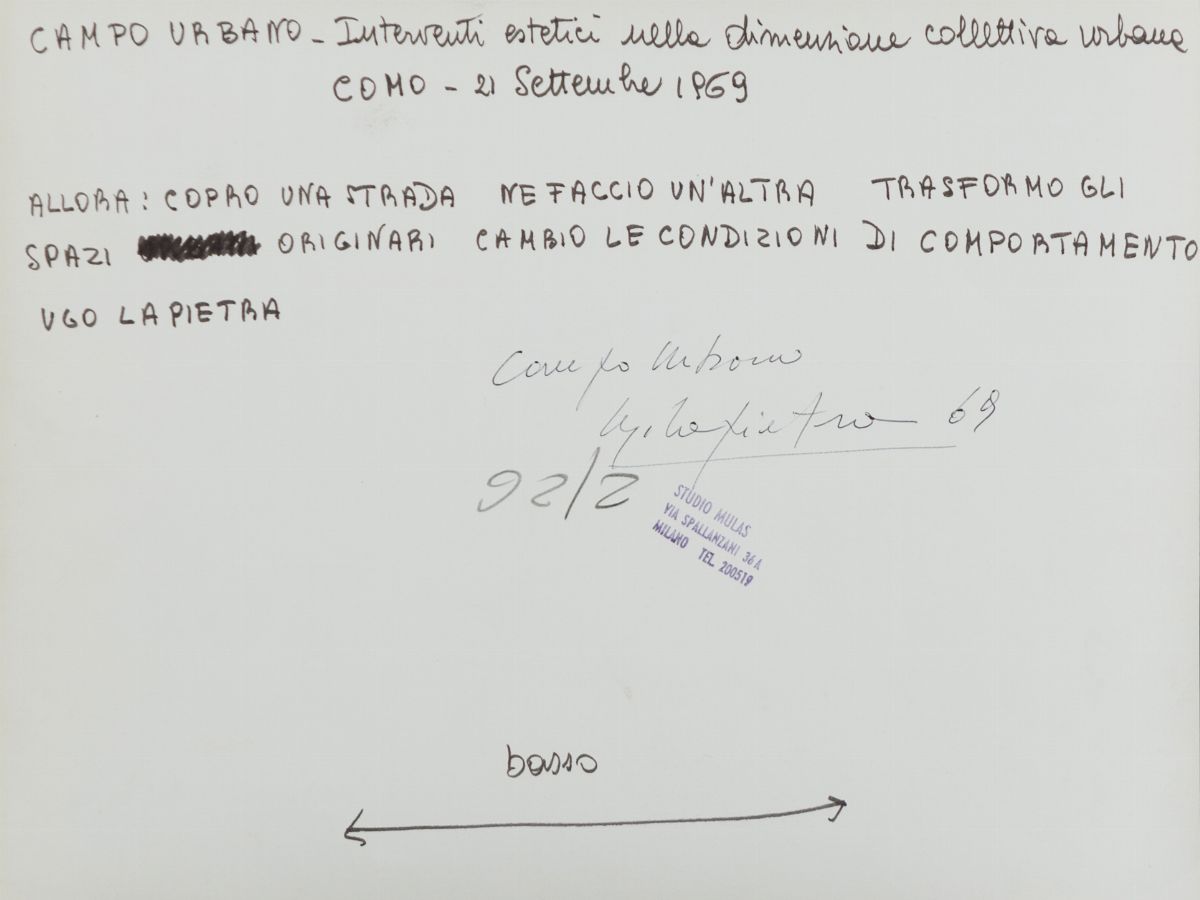 CAMPO URBANO - Interventi estetici nella dimensione collettiva urbana
COMO - 21 Settembre 1969
ALLORA: COPRO UNA STRADA NE FACCIO UN'ALTRA TRASFORMO GLI
SPAZI ORIGINARI CAMBIO LE CONDIZIONI DI COMPORTAMENTO
UGO LA PIETRA
Campo Urbano
Ugo La Pietra 69
92/2
STUDIO MULAS
VIA SPALLANZANI 36A
MILANO TEL. 200519
basso